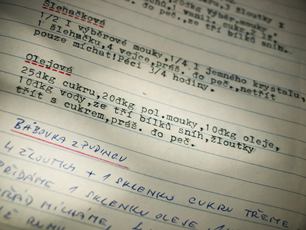 žloutky z
bílků sníh.
Šlehačková
1/2 l výběrové mouky, 1/4 l jemného krystalu,
1 šlehačku, 4 vejce, práš. do peč., netřít
pouze míchat! Péci 3/4 hodiny.
Olejová
25dkg cukru, 20dkg pol. mouky, 10dkg oleje,
10dkg vody, ze tří bílků sníh, žloutky
třít s cukrem, práš. do peč.
BÁBOVKA Z PUDINCU
4 ŽLOUTKY + 1 SKLENKU CUKRU TŘEME
PŘIDÁME 1 SKLENKU OLEJE
MÍCHÁME,